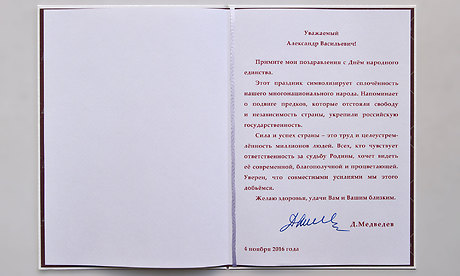 Уважаемый
Александр Васильевич!
Примите мои поздравления с Днём народного
единства.
Этот праздник символизирует сплочённость
нашего многонационального народа. Напоминает
о подвиге предков, которые отстояли свободу
и независимость страны, укрепили российскую
государственность.
Сила и успех страны – это труд и целеустрем-
лённость миллионов людей. Всех, кто чувствует
ответственность за судьбу Родины, хочет видеть
её современной, благополучной и процветающей.
Уверен, что совместными усилиями мы этого
добьёмся.
Желаю здоровья, удачи Вам и Вашим близким.
Д.Медведев
4 ноября 2016 года